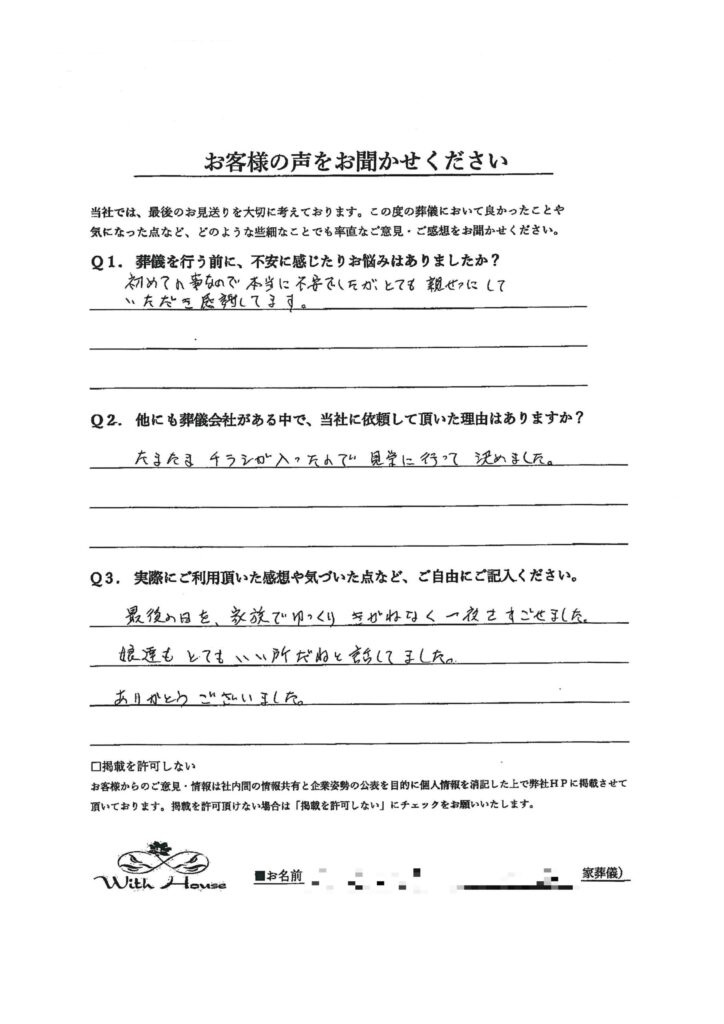 お客様の声をお聞かせください
当社では、最後のお見送りを大切に考えております。この度の葬儀において良かったことや
気になった点など、どのような些細なことでも率直なご意見・ご感想をお聞かせください。
Q１．葬儀を行う前に、不安に感じたりお悩みはありましたか？
初めての事なので本当に不安でしたがとても親せつにして
いただき感謝してます。
Q２．他にも葬儀会社がある中で、当社に依頼して頂いた理由はありますか？
たまたまチラシが入ったので見学に行って決めました。
Q３．実際にご利用頂いた感想や気づいた点など、ご自由にご記入ください。
最後の日を、家族でゆっくりきがねなく一夜をすごせました。
娘達もとてもいい所だねと話してました。
ありがとうございました。
□掲載を許可しない
お客様からのご意見・情報は社内間の情報共有と企業姿勢の公表を目的に個人情報を消記した上で弊社ＨＰに掲載させて
頂いております。掲載を許可頂けない場合は「掲載を許可しない」にチェックをお願いいたします。
With House
■お名前 家葬儀）